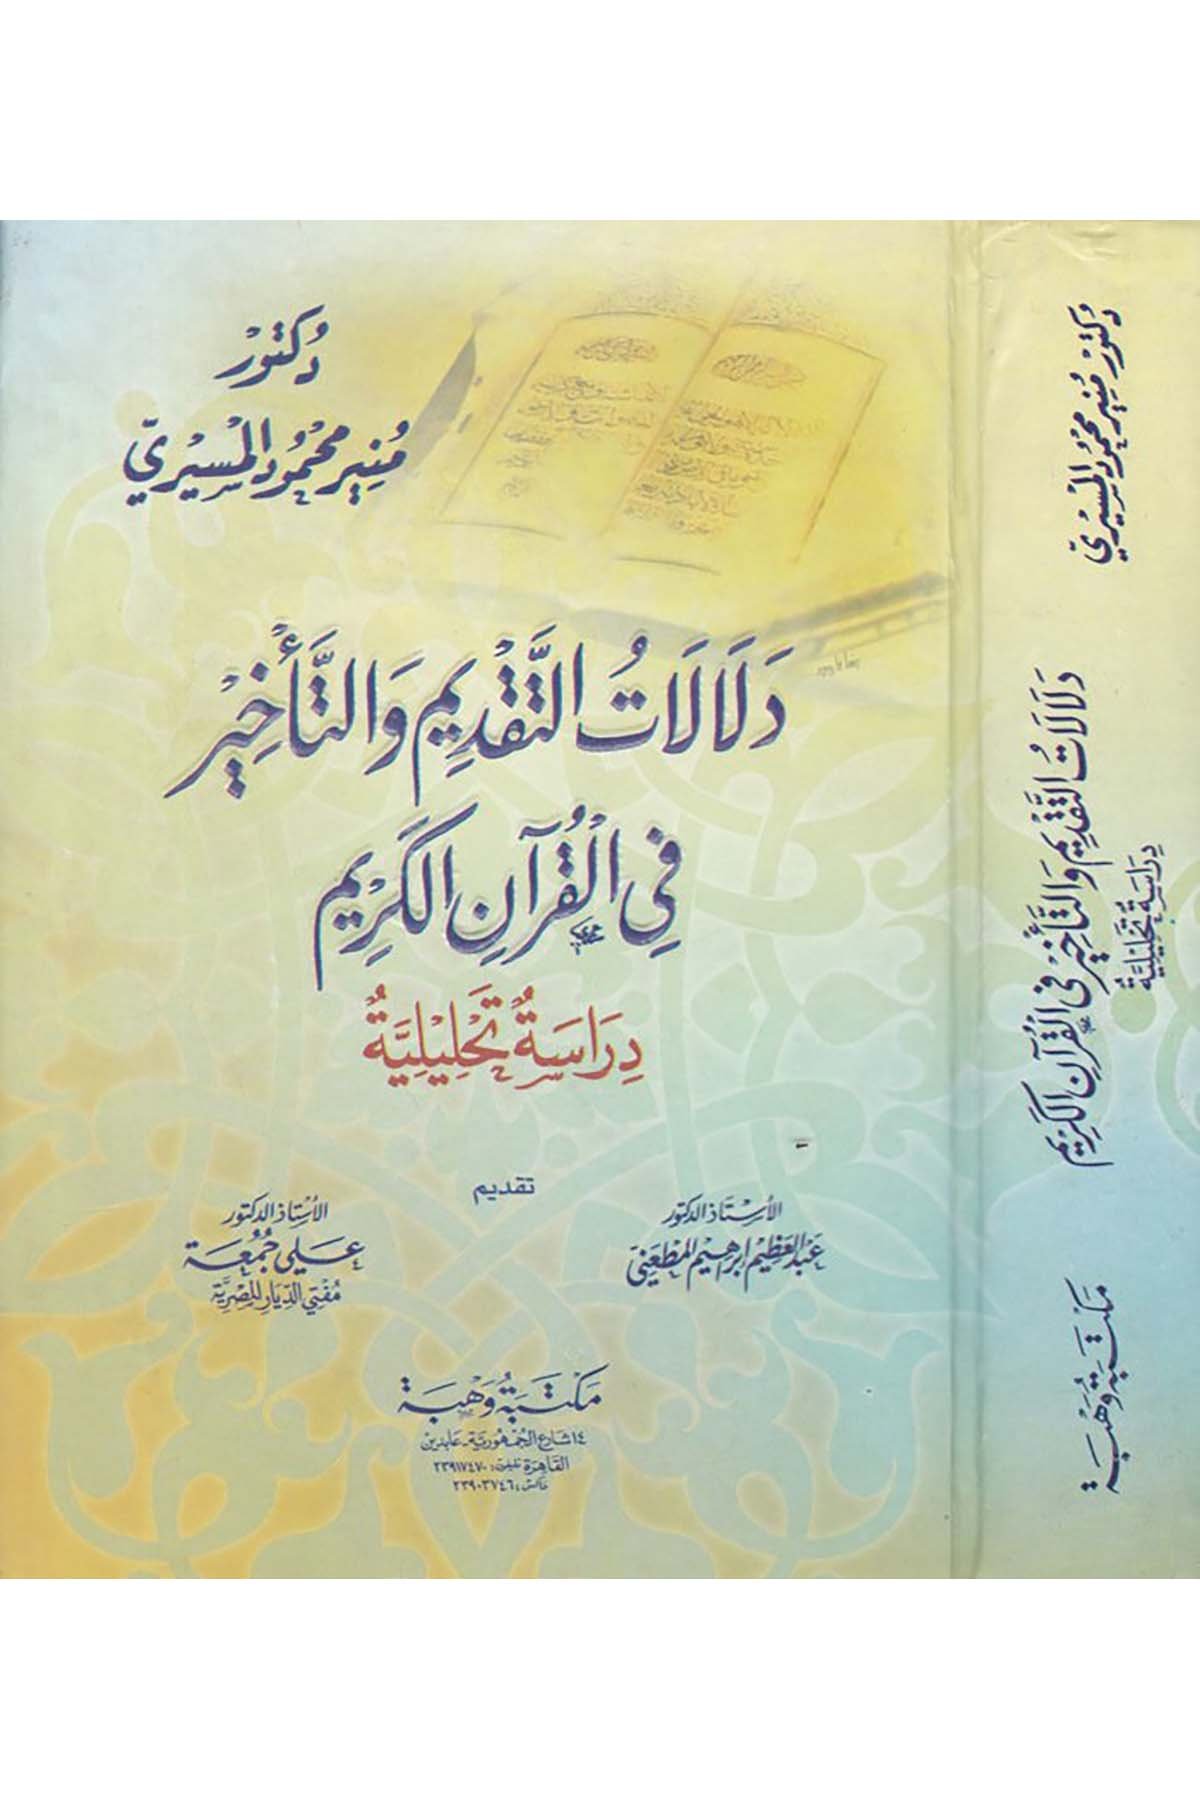 دُكتُورْ
مُنِير محْمُود المْسِيْريّ
دَلَالَاتُ التَّقْدِيمِ وَالتَّأْخِيْر
فِي الْقُرْآنِ الكَرِيْمِ
دِرَاسَةٌ تَحْلِيْلِيَّةٌ
تقديم
الأُسْتَاذ الدكتور
عَبْد العَظِيْم إبراهِيْم المَطعَني
الأُسْتَاذ الدكتور
عَلي جُمُعَة
مُفتي الدِّيَار المِصْرِيَّة
مَكتَبَةُ وَهْبَة
١٤ شارع الجُمهُوريَّة - عابدين
القَاهِرَة تليفون : ٢٣٩١٧٤٧٠
فاكس : ٢٣٩٠٣٧٤٦
دُكتُورْ مُنِير محْمُود المْسِيْريّ
دَلَالَاتُ التَّقْدِيمِ وَالتَّأْخِيْر فِي الْقُرْآنِ الكَرِيْمِ
دِرَاسَةٌ تَحْلِيْلِيَّةٌ
مَكتَبَةُ وَهْبَة